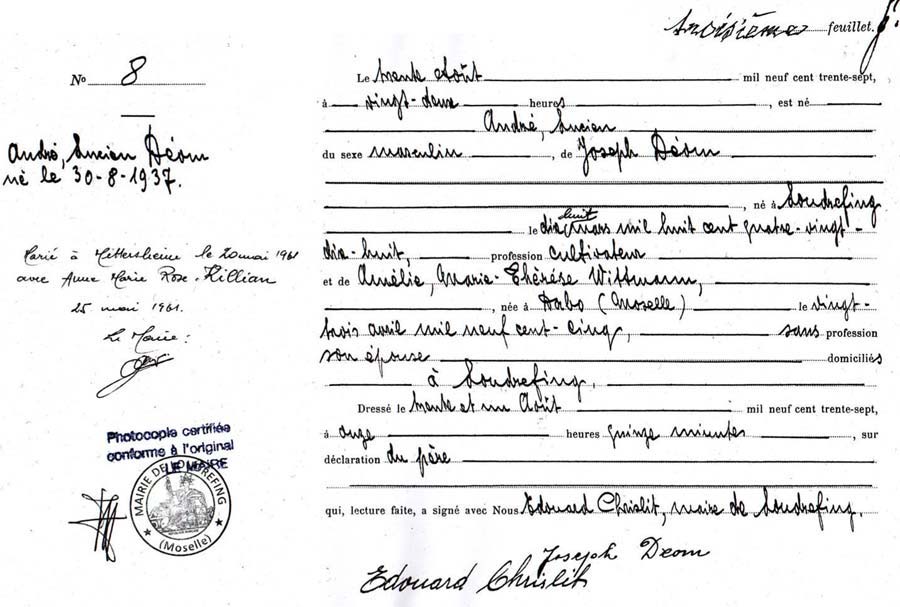 troisième feuillet.
No 8
Le trente Août mil neuf cent trente-sept,
à vingt-deux heures, est né
André, Lucien
du sexe masculin, de Joseph Déom
, né à Loudrefing
le dix huit mars mil huit cent quatre-vingt-
dix-huit, profession cultivateur
et de Amélie, Marie-Thérèse Wittmann,
, née à Dabo (Moselle) le vingt-
trois avril mil neuf cent-cinq, sans profession
son épouse domiciliés
à Loudrefing.
Dressé le trente et un Août mil neuf cent trente-sept,
à onze heures quinze minutes, sur
déclaration du père
qui, lecture faite, a signé avec Nous Edouard Chrislit, maire de Loudrefing.
Joseph Deom
Edouard Chrislit
André, Lucien Déom
né le 30-8-1937.
Marié à Mittersheim le 20 mai 1961
avec Anne Marie Rose Killian
25 mai 1961.
Le Maire:
Photocopie certifiée
conforme à l'original
LE MAIRE
MAIRIE DE LOUDREFING
(Moselle)